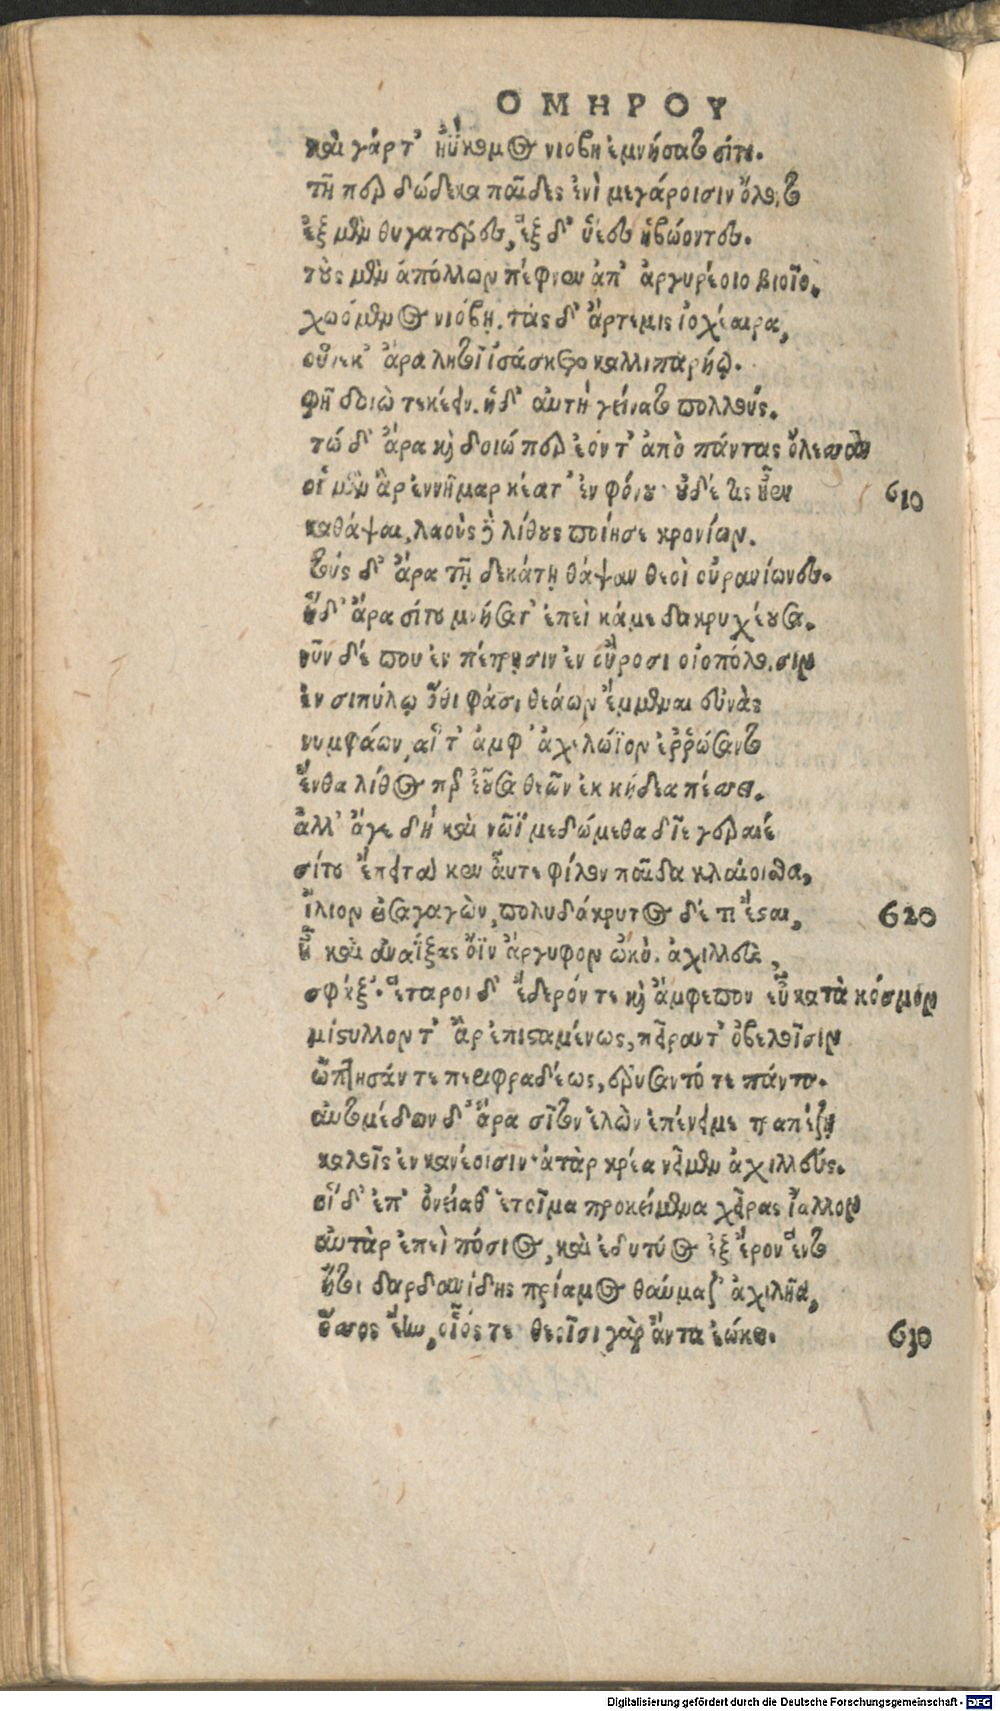 ΟΜΗΡΟΥ
καὶ γάρ τ' ἠΰκομος νιόβη ἐμνήσατο σίτου.
τῇ περ δώδεκα παῖδες ἐνὶ μεγάροισιν ὄλοντο
ἓξ μὲν θυγατέρες, ἓξ δ' ὑέες ἡβώοντες.
τοὺς μὲν ἀπόλλων πέφνεν ἀπ' ἀργυρέοιο βιοῖο.
χωόμενος νιόβῃ. τὰς δ' ἄρτεμις ἰοχέαιρα,
οὕνεκ' ἄρα λητοῖ ἰσάσκετο καλλιπαρῄῳ.
φῆ δοιὼ τεκέειν. ἡ δ' αὐτὴ γείνατο πολλούς.
τώ δ' ἄρα καὶ δοιώ περ ἐόντ' ἀπὸ πάντας ὄλεσσαν
οἱ μὲν ἂρ ἐννῆμαρ κέατ' ἐν φόνῳ· οὐδέ τις ἦεν 610
καθάψαι, λαοὺς δὲ λίθους ποίησε κρονίων.
τοὺς δ' ἄρα τῇ δεκάτῃ θάψαν θεοὶ οὐρανίωνες.
ἡ δ' ἄρα σίτου μνήσατ' ἐπεὶ κάμε δακρυχέουσα.
νῦν δέ που ἐν πέτρῃσιν ἐν οὔροσι οἰοπόλοισιν
ἐν σιπύλῳ ὅθι φάσι θεάων ἔμμεναι εὐνὰς
νυμφάων, αἵ τ' ἀμφ' ἀχελώϊον ἐῤῥώσαντο
ἔνθα λίθος περ ἐοῦσα θεῶν ἐκ κήδεα πέσσει.
ἀλλ' ἄγε δὴ καὶ νῶϊ μεδώμεθα δῖε γεραιέ
σίτου ἔπειτα κεν αὖτε φίλον παῖδα κλαίοισθα,
ἴλιον εἰσαγαγὼν, πολυδάκρυτος δέ τοι ἔσται, 620
ἦ καὶ ἀναΐξας ὄϊν ἄργυφον ὠκὺς ἀχιλλεὺς,
σφάξ'· ἕταροι δ' ἔδερόν τε καὶ ἄμφεπον εὖ κατὰ κόσμον
μίστυλλον τ' ἂρ ἐπισταμένως, πεῖραν τ' ὀβελοῖσιν
ὤπτησάν τε περιφραδέως, ἐρύσαντό τε πάντα.
αὐτομέδων δ' ἄρα σῖτον ἑλὼν ἐπένειμε τραπέζῃ
καλοῖς ἐν κανέοισιν· ἀτὰρ κρέα νεῖμεν ἀχιλλεύς.
οἱ δ' ἐπ' ὀνείαθ' ἑτοῖμα προκείμενα χεῖρας ἴαλλον
αὐτὰρ ἐπεὶ πόσιος, καὶ ἐδητύος ἐξ ἔρον ἕντο
ἤτοι δαρδανίδης πρίαμος θαύμαζ' ἀχιλῆα,
ὅσσος ἔην, οἷός τε θεοῖσι γὰρ ἄντα ἐῴκει. 630
Digitalisierung gefördert durch die Deutsche Forschungsgemeinschaft - DFG